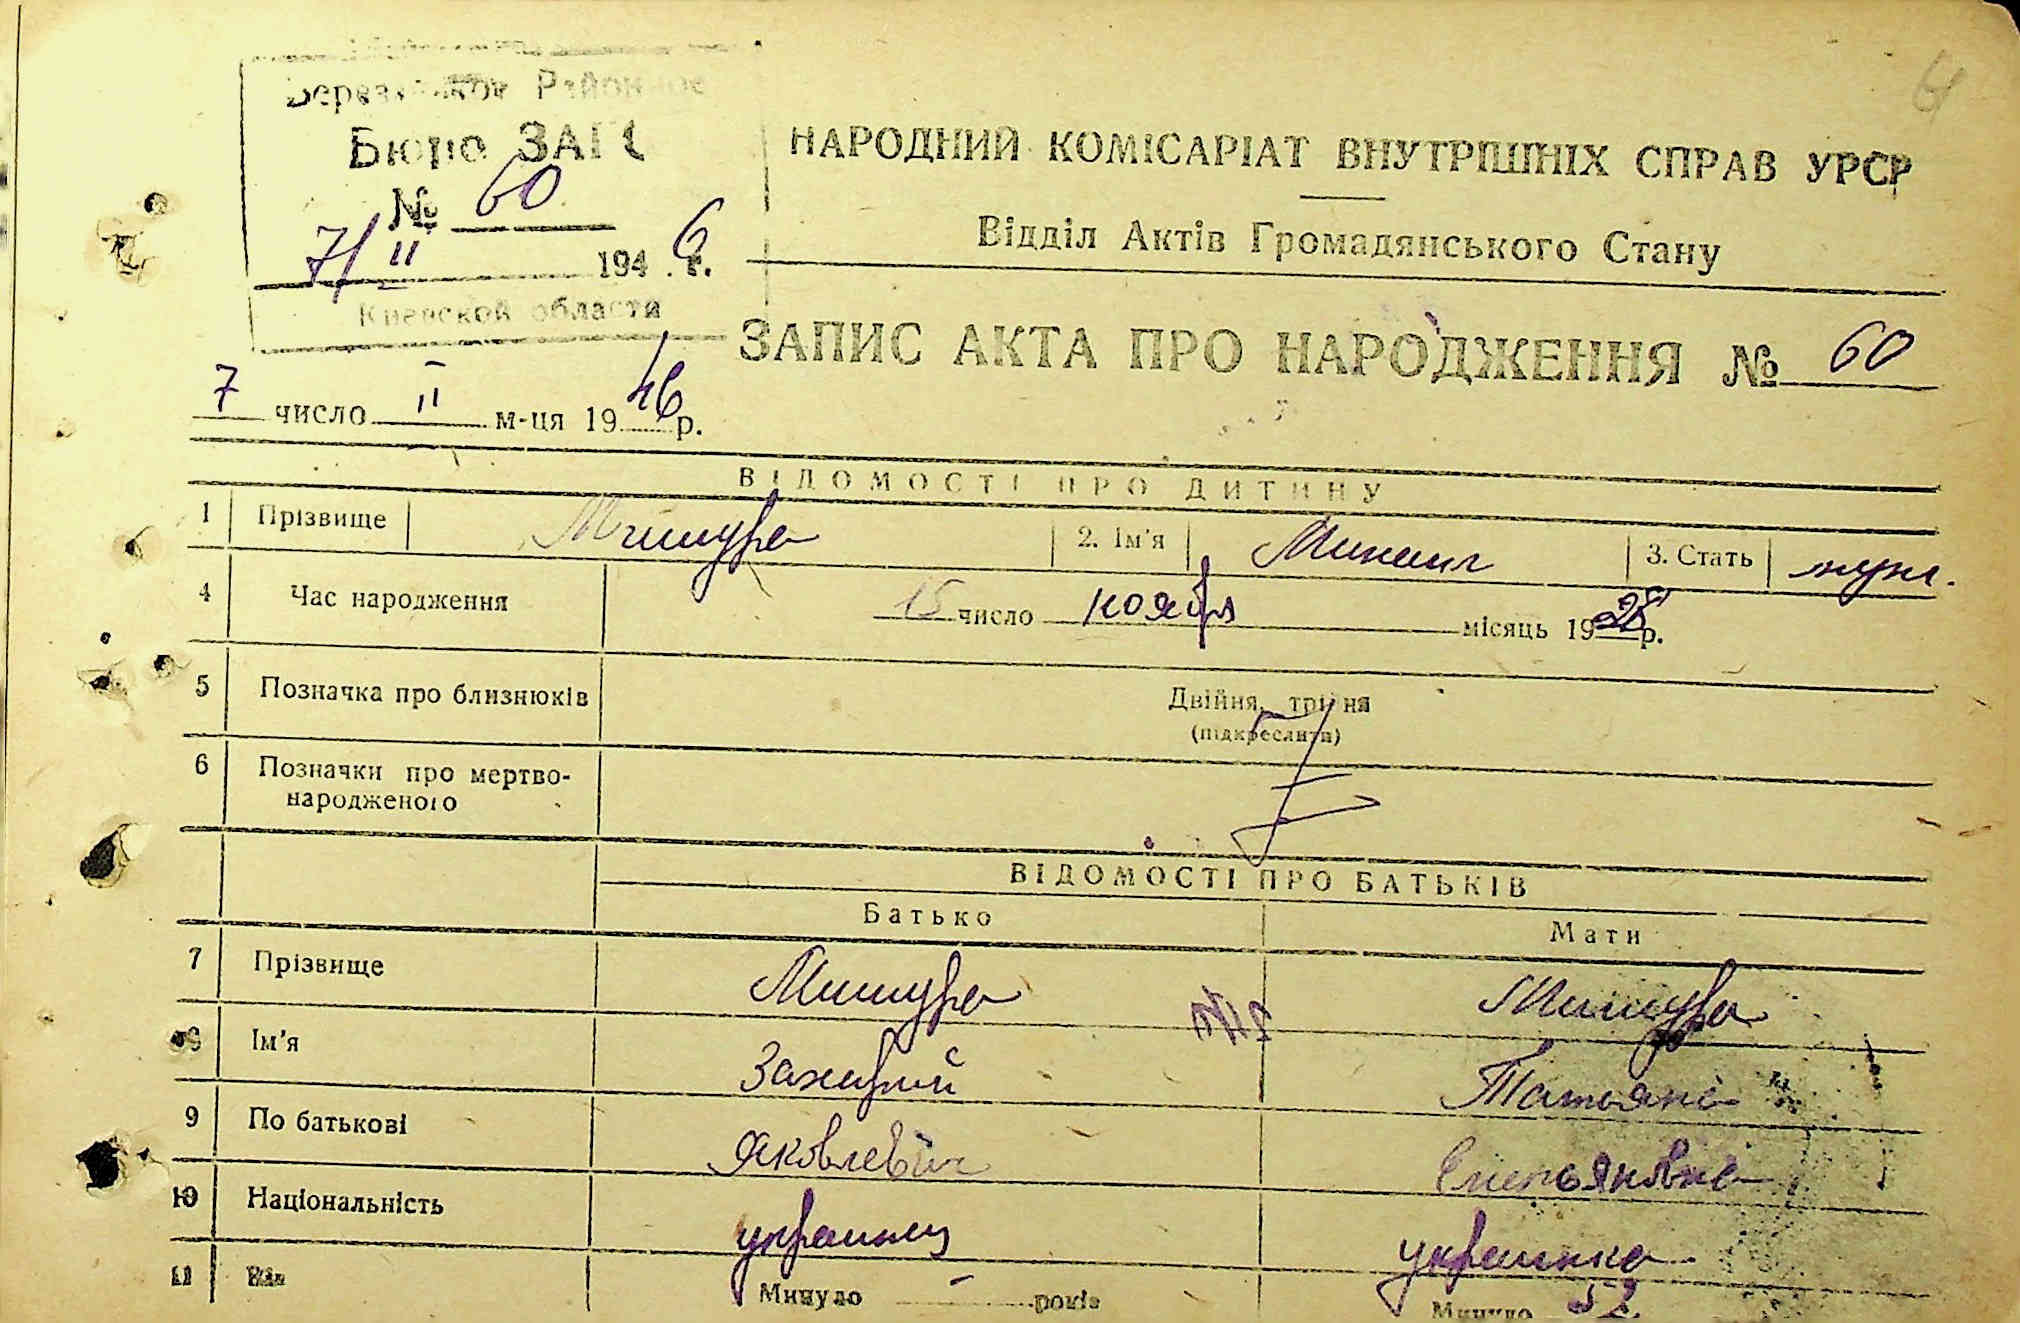 Районное
Бюро ЗАГС
№ 60
7/II 1946 г.
Киевской области
НАРОДНИЙ КОМІСАРІАТ ВНУТРІШНІХ СПРАВ УРСР
Відділ Актів Громадянського Стану
ЗАПИС АКТА ПРО НАРОДЖЕННЯ № 60
7 число II м-ця 1946 р.
ВІДОМОСТІ ПРО ДИТИНУ
1 Прізвище Мишура 2. Ім'я Михаил 3. Стать муж.
4 Час народження 15 число ноября місяць 1928 р.
5 Позначка про близнюків Двійня, трійня
(підкреслити)
6 Позначки про мертво-
народженого
ВІДОМОСТІ ПРО БАТЬКІВ
Батько Мати
7 Прізвище Мишура Мишура
8 Ім'я Захарий Татьяна
9 По батькові Яковлевич Емельяновна
10 Національність украинец украинка
11 Вік Минуло - років Минуло 52